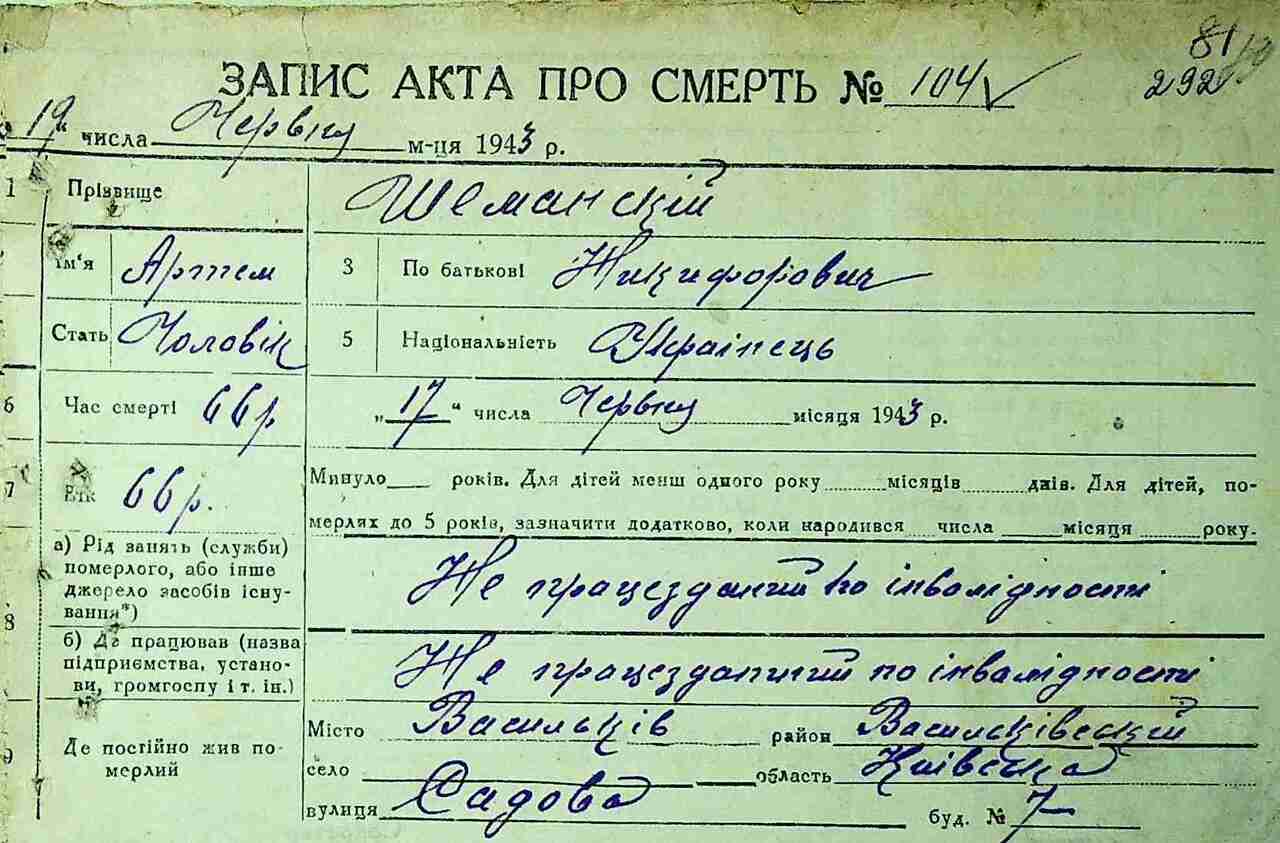 81
292
ЗАПИС АКТА ПРО СМЕРТЬ № 104
„19“ числа Червня м-ця 1943 р.
1 Прізвище Шеманскій
Ім'я Артем 3 По батькові Никифорович
Стать Чоловік 5 Національність Українець
6 Час смерті 66 р „17“ числа Червня місяця 1943 р.
7 Вік 66 р. Минуло ___ років. Для дітей менш одного року ___ місяців ___ днів. Для дітей, по-
мерлях до 5 років, зазначити додатково, коли народився ___ числа ___ місяця ___ року.
8 а) Рід занять (служби)
померлого, або інше
джерело засобів існу-
вання*)
Не працездатний по інволідности
б) Де працював (назва
підприємства, устано-
ви, громгоспу і т. ін.)
Не працездатний по інвалідности
9 Де постійно жив по-
мерлий
Місто Васильків район Васильківський
село область Київська
вулиця Садова буд. № 7